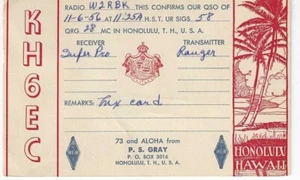 RADIO W2RBK THIS CONFIRMS OUR QSO OF
11-6-56 AT 11:25A H.S.T. UR SIGS. 58
QRG. 28 MC IN HONOLULU, T. H., U. S. A.
RECEIVER TRANSMITTER
Super Pro Ranger
KH6EC
REMARKS: Tnx card
73 and ALOHA from
P. S. GRAY
P. O. BOX 3016
HONOLULU, T. H., U. S. A.
HONOLULU
HAWAII